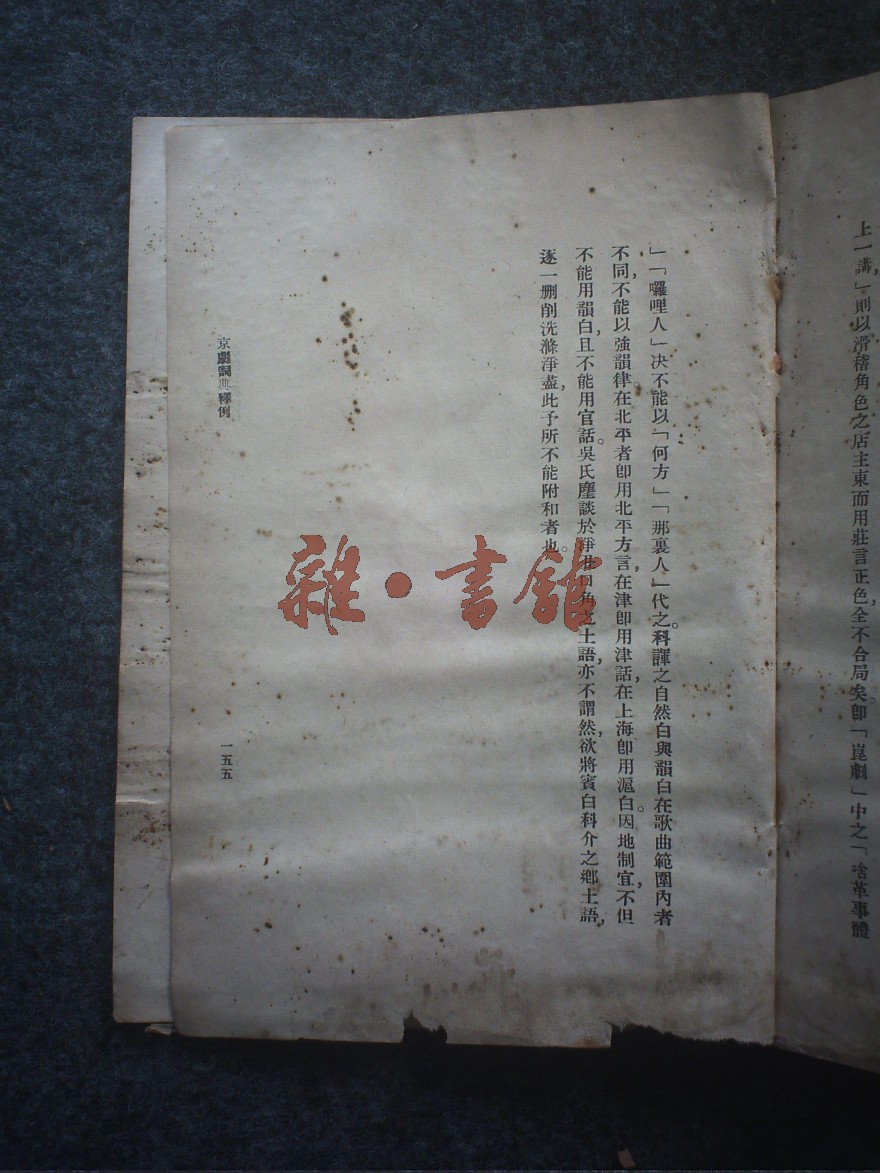 上一講，」則以滑稽角色之店主東而用莊言正色全不合局矣卽「崑劇」中之「啥革事體
」「囉哩人」决不能以「何方」「那裏人」代之。科諢之自然白與韻白在歌曲範圍內者
不同，不能以強韻律。在北平者卽用北平方言，在津卽用津話，在上海卽用滬白。因地制宜，不但
不能用韻白，且不能用官話。吳氏塵談於淨丑土語，亦不謂然，欲將賓白科介之鄉土語，
逐一删削洗滌淨盡，此予所不能附和者也。
京劇詞典釋例
一五五
雜·書館